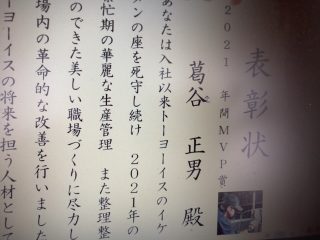 表彰状
2021 年間MVP賞
葛谷 正男 殿
あなたは入社以来トーヨーイスのイケ
メンの座を死守し続け 2021年の
繁忙期の華麗な生産管理 また整理整
のできた美しい職場づくりに尽力し
場内の革命的な改善を行いました
トーヨーイスの将来を担う人材として